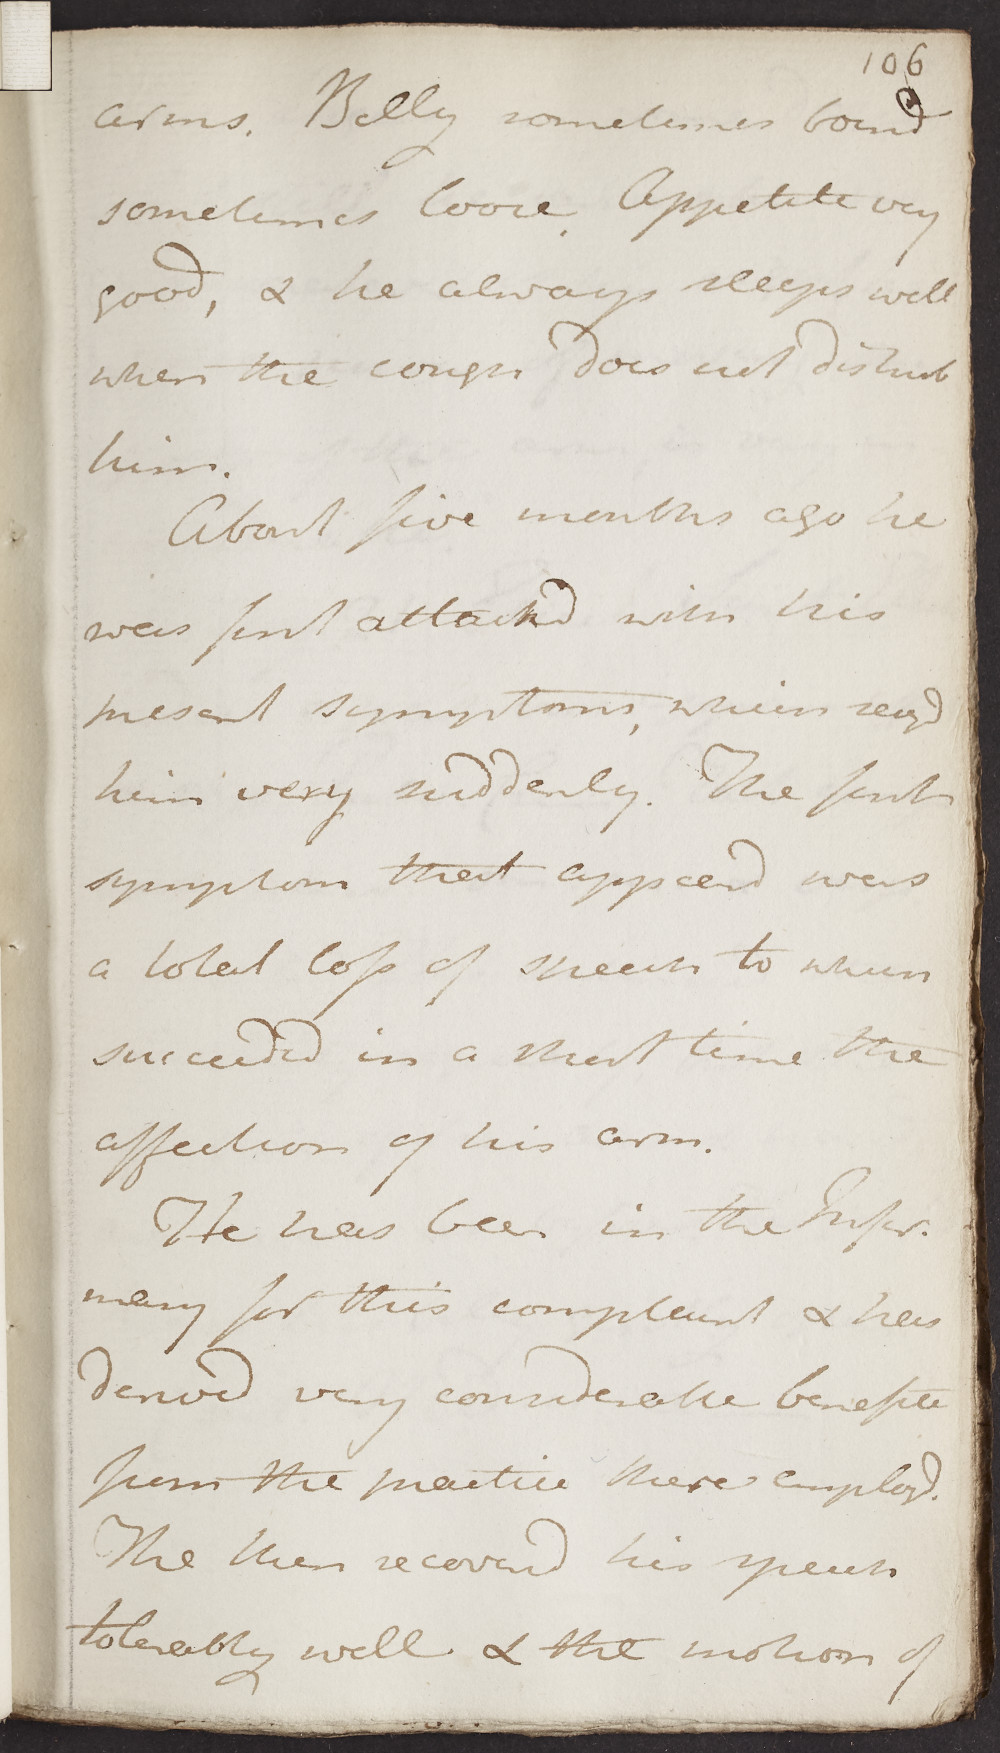 106
arms. Belly sometimes bound
sometimes loose. Appetite very
good, & he always sleeps well
when the cough does not disturb
him.
About five months ago he
was first attackd with his
present symptoms, which seizd
him very suddenly. The first
symptom that appeard was
a total loss of speech to whom
succeeded in a short time the
affection of his arm.
He has been in the Infir-
mary for this complaint & has
derived very considerable benefite
from the practice there employd.
The then recoverd his speech
tolerably well & the motion of